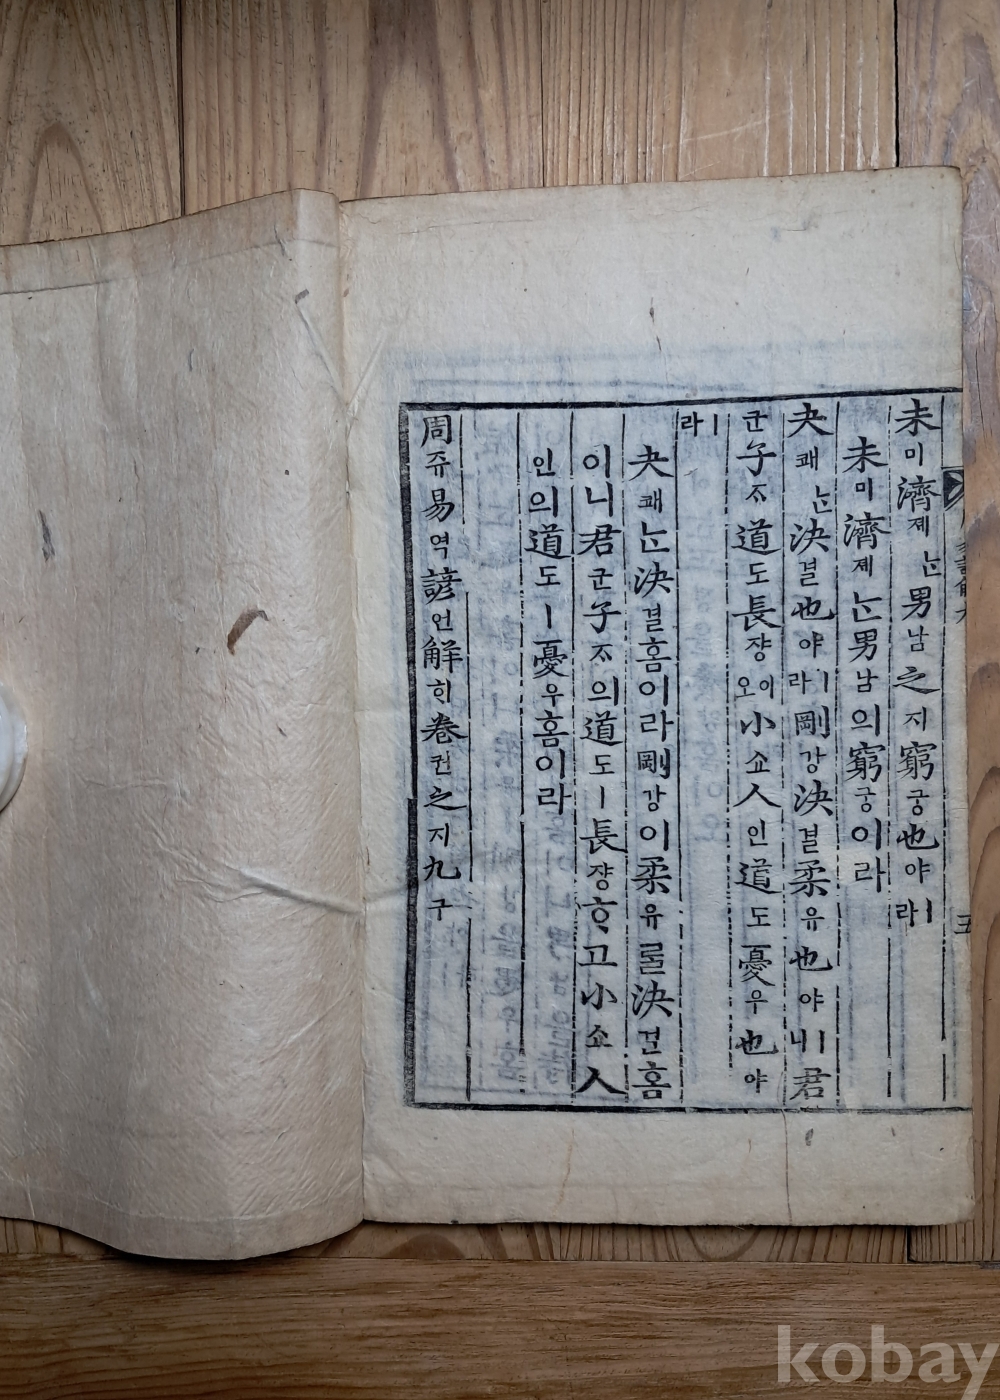 未미濟졔ᄂᆞᆫ男남之지窮궁也야ㅣ라
未미濟졔ᄂᆞᆫ男남의窮궁이라
夬쾌ᄂᆞᆫ決결也야ㅣ라剛강決결柔유也야ㅣ니君
군子ᄌᆞ道도長쟝이오小쇼人인道도憂우也야
ㅣ라
夬쾌ᄂᆞᆫ決결홈이라剛강이柔유ᄅᆞᆯ決결홈
이니君군子ᄌᆞ의道도ㅣ長쟝ᄒᆞ고小쇼人
인의道도ㅣ憂우홈이라
周쥬易역諺언解ᄒᆡ卷권之지九구
kobay